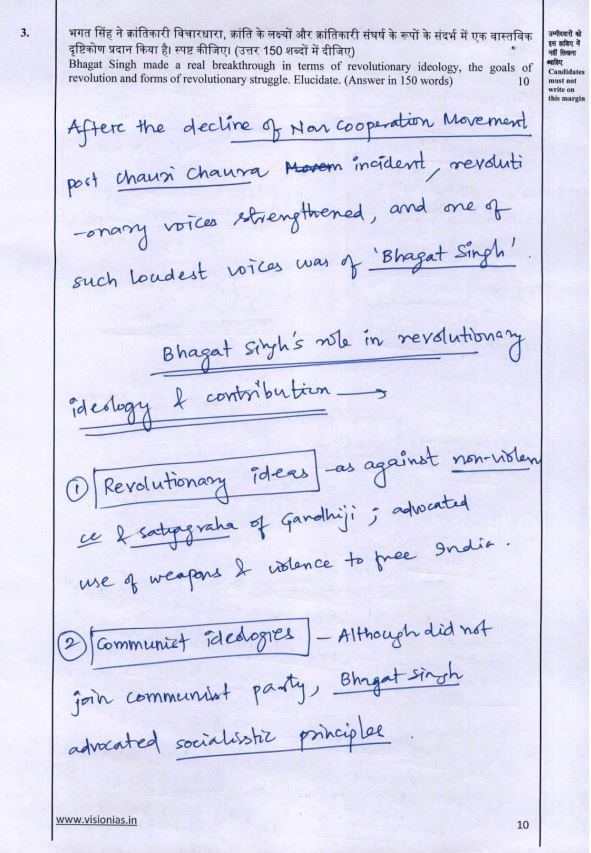 3.
भगत सिंह ने क्रांतिकारी विचारधारा, क्रांति के लक्ष्यों और क्रांतिकारी संघर्ष के रूपों के संदर्भ में एक वास्तविक
दृष्टिकोण प्रदान किया है। स्पष्ट कीजिए। (उत्तर 150 शब्दों में दीजिए)
Bhagat Singh made a real breakthrough in terms of revolutionary ideology, the goals of
revolution and forms of revolutionary struggle. Elucidate. (Answer in 150 words) 10
उम्मीदवारों को
इस हाशिए में
नहीं लिखना
चाहिए
Candidates
must not
write on
this margin
After the decline of Non Cooperation Movement
post Chauri Chaura incident, revoluti
-onary voices strengthened, and one of
such loudest voices was of 'Bhagat Singh'.
Bhagat Singh's role in revolutionary
ideology & contribution →
① Revolutionary ideas - as against non-violen
ce & satyagraha of Gandhiji ; advocated
use of weapons & violence to free India.
② Communist ideologies - Although did not
join communist party, Bhagat Singh
advocated socialisstic principles.
www.visionias.in
10